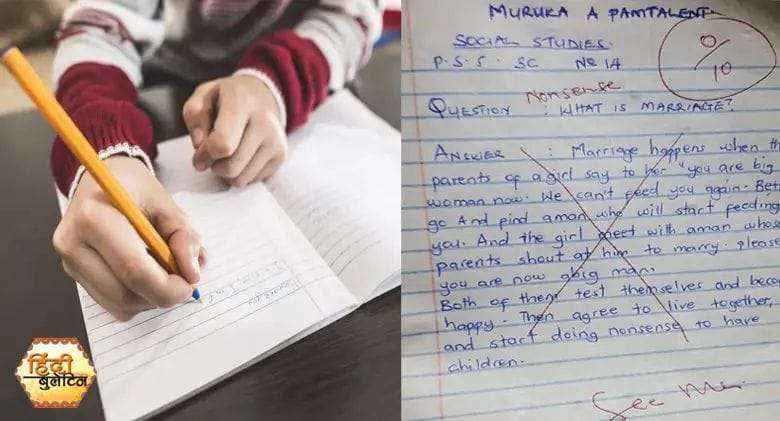 MURUKA A PAMTALENT
SOCIAL STUDIES.
P.S.5. SC No 1A
0/10
Nonsense
QUESTION : WHAT IS MARRIAGE?
ANSWER : Marriage happens when th
parents of a girl say to her "you are big
woman now. We can't feed you again. Bet
go And find aman who will start feeding
you. And the girl meet with aman whos
parents shout at him to marry. pleas
you are now abig man.
Both of them test themselves and beco
happy. Then agree to live together,
and start doing nonsense to have
children.
See Me.
हिंदी
बुलेटिन